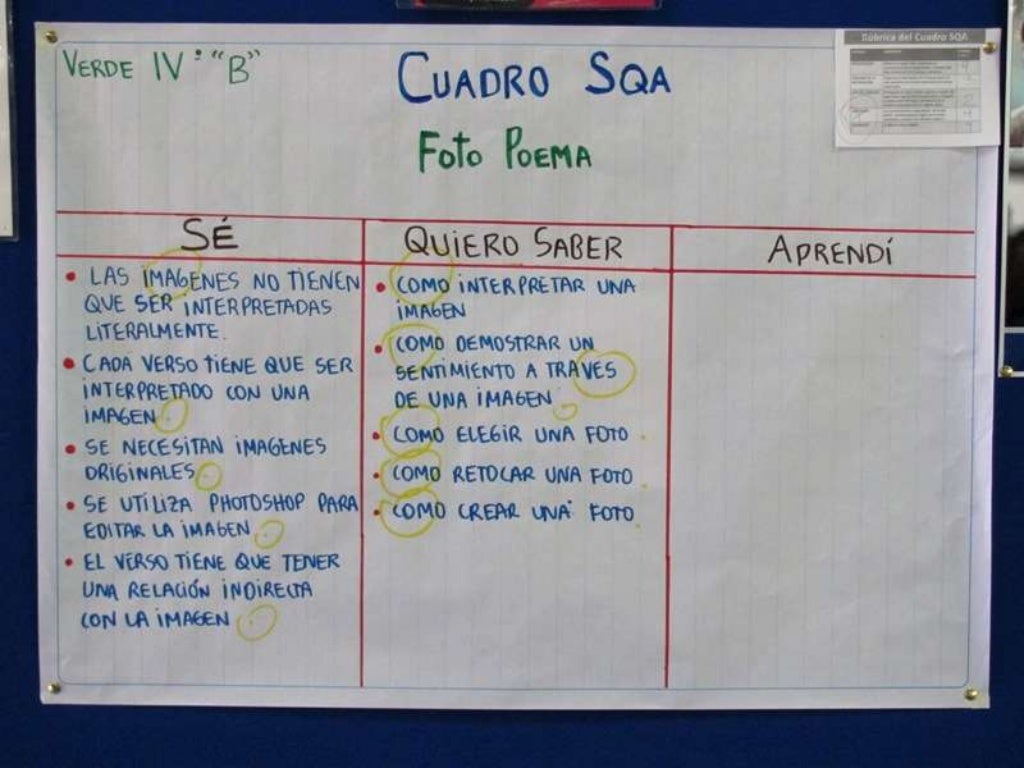 VERDE IV "B"
CUADRO SQA
FOTO POEMA
Rúbrica del Cuadro SQA
SÉ
LAS IMAGENES NO TIENEN
QUE SER INTERPRETADAS
LITERALMENTE.
CADA VERSO TIENE QUE SER
INTERPRETADO CON UNA
IMAGEN.
SE NECESITAN IMAGENES
ORIGINALES.
SE UTILIZA PHOTOSHOP PARA
EDITAR LA IMAGEN.
EL VERSO TIENE QUE TENER
UNA RELACIÓN INDIRECTA
CON LA IMAGEN.
QUIERO SABER
COMO INTERPRETAR UNA
IMAGEN
COMO DEMOSTRAR UN
SENTIMIENTO A TRAVES
DE UNA IMAGEN.
COMO ELEGIR UNA FOTO.
COMO RETOCAR UNA FOTO.
COMO CREAR UNA FOTO.
APRENDÍ